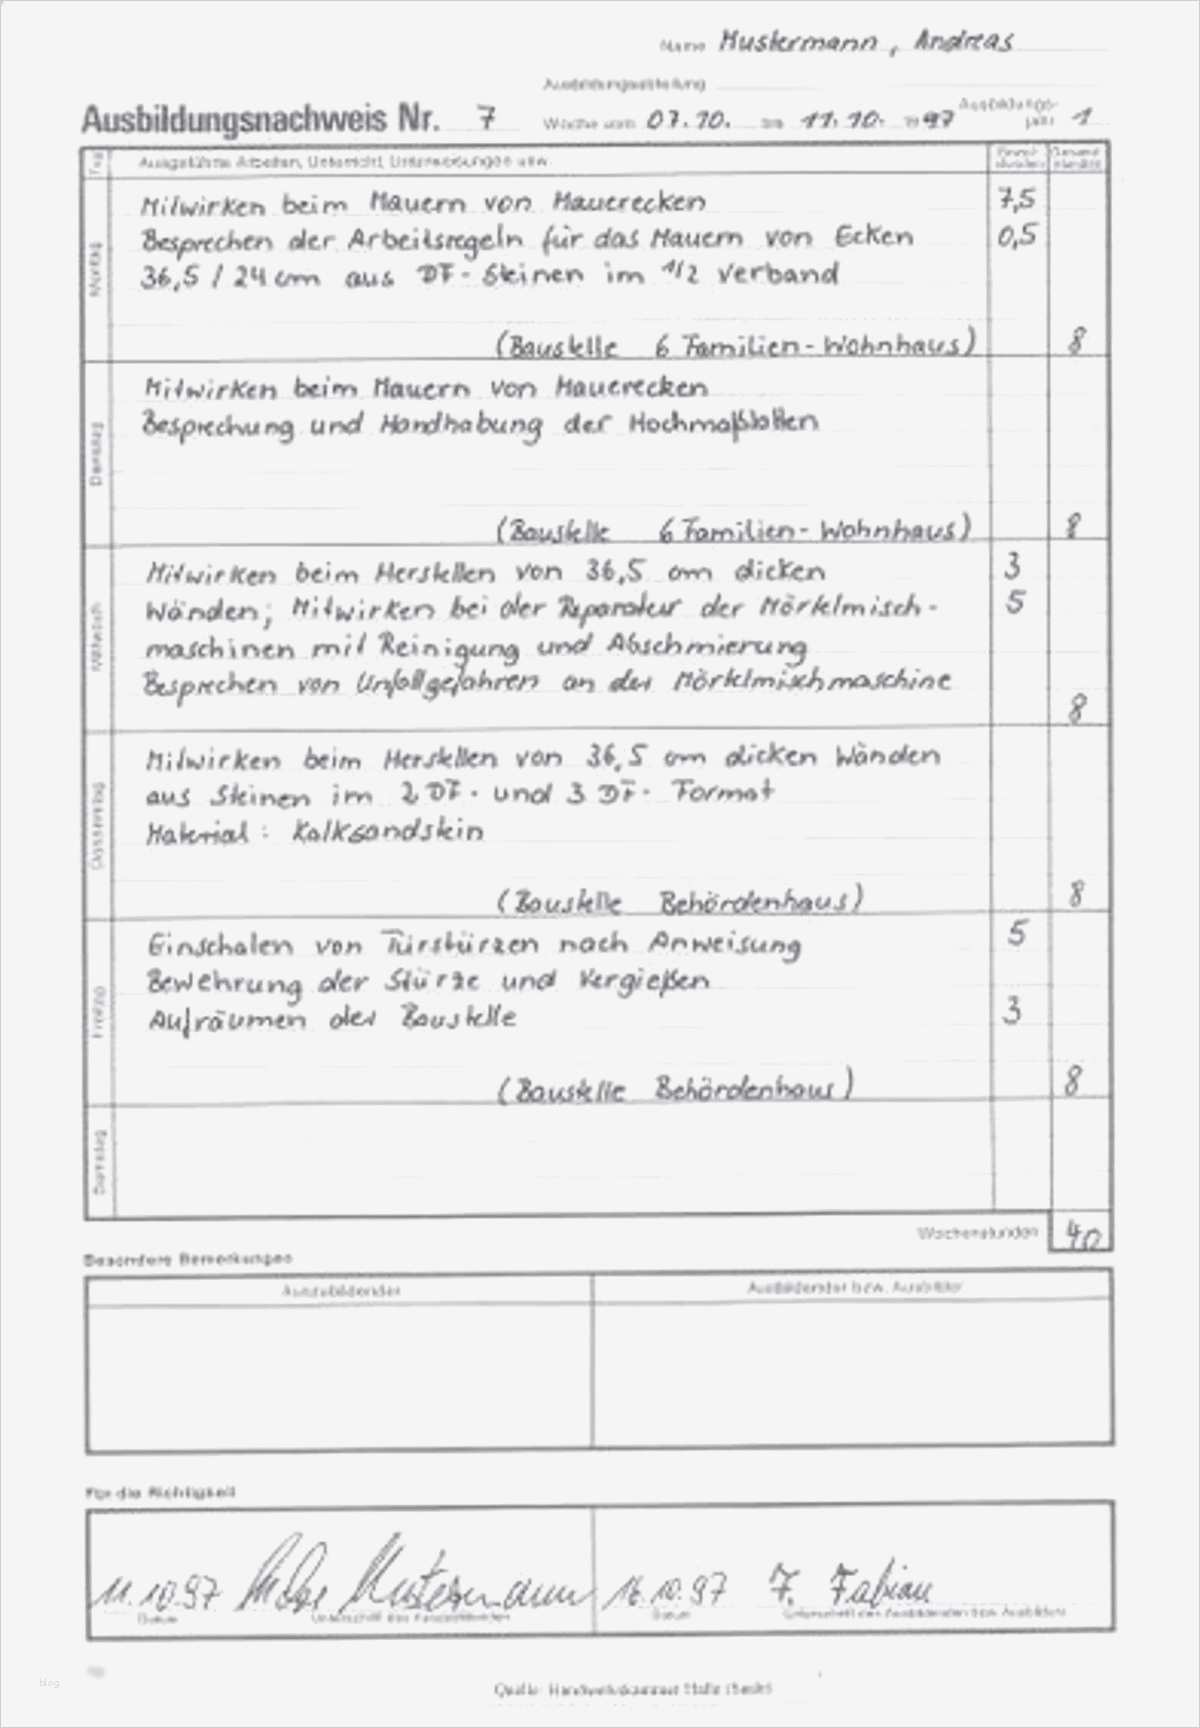 Name Mustermann, Andreas
Ausbildungsabteilung
Ausbildungsnachweis Nr. 7 Woche vom 07.10. bis 11.10. 1997 Ausbildungs-
jahr 1
Tag Ausgeführte Arbeiten, Unterricht, Unterweisungen usw. Einzel- Gesamt-
stunden stunden
Montag
Mitwirken beim Mauern von Mauerecken 7,5
Besprechen der Arbeitsregeln für das Mauern von Ecken 0,5
36,5 / 24 cm aus DF-Steinen im 1/2 Verband
(Baustelle 6 Familien-Wohnhaus) 8
Dienstag
Mitwirken beim Mauern von Mauerecken
Besprechung und Handhabung der Hochmaßlatten
(Baustelle 6 Familien-Wohnhaus) 8
Mittwoch
Mitwirken beim Herstellen von 36,5 cm dicken 3
Wänden; Mitwirken bei der Reparatur der Mörtelmisch- 5
maschinen mit Reinigung und Abschmierung
Besprechen von Unfallgefahren an der Mörtelmischmaschine
8
Donnerstag
Mitwirken beim Herstellen von 36,5 cm dicken Wänden
aus Steinen im 2 DF- und 3 DF- Format
Material: Kalksandstein
(Baustelle Behördenhaus) 8
Freitag
Einschalen von Türstürzen nach Anweisung 5
Bewehrung der Stürze und Vergießen
Aufräumen der Baustelle 3
(Baustelle Behördenhaus) 8
Samstag
Wochenstunden 40
Besondere Bemerkungen
Auszubildender Ausbildender bzw. Ausbilder
Für die Richtigkeit
11.10.97 Mustermann 16.10.97 F. Fabian
Datum Unterschrift des Auszubildenden Datum Unterschrift des Ausbildenden bzw. Ausbilders
blog
Quelle: Handwerkskammer Halle (Saale)